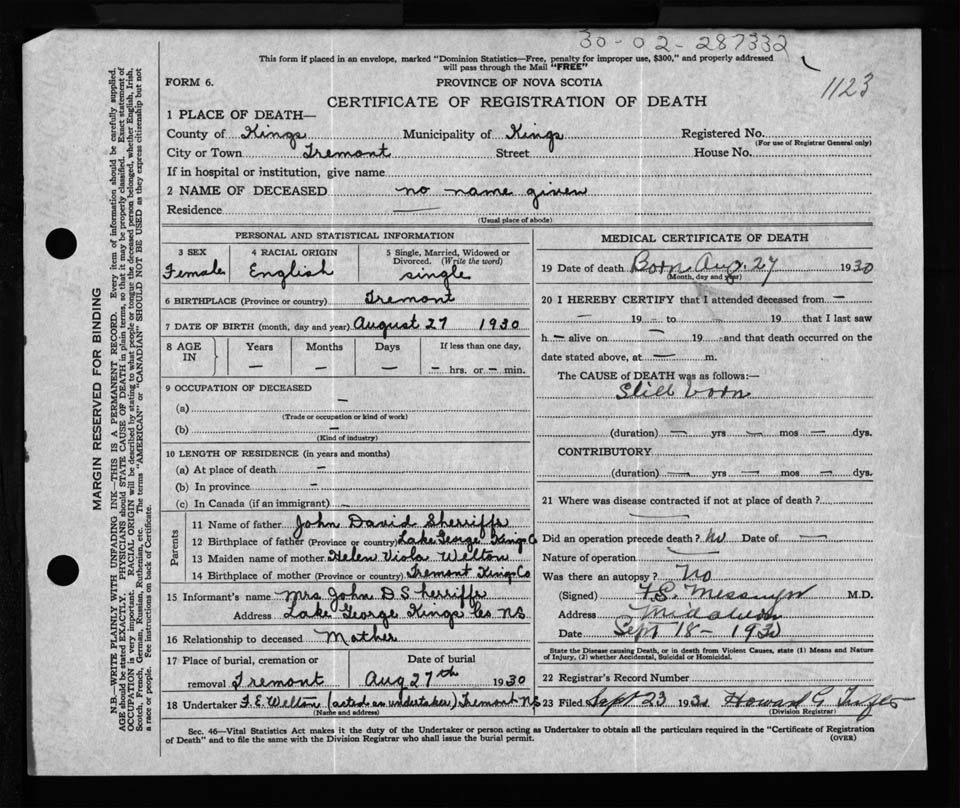 30-02-287332
1123
This form if placed in an envelope, marked "Dominion Statistics—Free, penalty for improper use, $300," and properly addressed
will pass through the Mail "FREE"
FORM 6. PROVINCE OF NOVA SCOTIA
CERTIFICATE OF REGISTRATION OF DEATH
1 PLACE OF DEATH—
County of Kings Municipality of Kings Registered No.
(For use of Registrar General only)
City or Town Tremont Street House No.
If in hospital or institution, give name
2 NAME OF DECEASED no name given
Residence —
(Usual place of abode)
PERSONAL AND STATISTICAL INFORMATION
3 SEX 4 RACIAL ORIGIN 5 Single, Married, Widowed or
Divorced. (Write the word)
Female English single
6 BIRTHPLACE (Province or country) Tremont
7 DATE OF BIRTH (month, day and year) August 27 1930
8 AGE IN Years Months Days If less than one day,
— — — — hrs. or — min.
9 OCCUPATION OF DECEASED
(a) —
(Trade or occupation or kind of work)
(b) —
(Kind of industry)
10 LENGTH OF RESIDENCE (in years and months)
(a) At place of death —
(b) In province —
(c) In Canada (if an immigrant) —
Parents
11 Name of father John David Sherriffs
12 Birthplace of father (Province or country) Lake George Kings Co
13 Maiden name of mother Helen Viola Welton
14 Birthplace of mother (Province or country) Tremont Kings Co
15 Informant's name Mrs John D Sherriffs
Address Lake George Kings Co NS
16 Relationship to deceased Mother
17 Place of burial, cremation or Date of burial
removal Tremont Aug 27th 1930
18 Undertaker F. E. Welton (acted as undertaker) Tremont NS
(Name and address)
MEDICAL CERTIFICATE OF DEATH
19 Date of death Born Aug. 27 1930
(Month, day and year)
20 I HEREBY CERTIFY that I attended deceased from —
— 19 to — 19 that I last saw
h — alive on — 19 — and that death occurred on the
date stated above, at — m.
The CAUSE of DEATH was as follows:—
Still born
(duration) — yrs — mos — dys.
CONTRIBUTORY
(duration) — yrs — mos — dys.
21 Where was disease contracted if not at place of death?
—
Did an operation precede death? No Date of —
Nature of operation —
Was there an autopsy? No
(Signed) F.S. Messenger M.D.
Address Middleton
Date Sept 18— 1930
State the Disease causing Death, or in death from Violent Causes, state (1) Means and Nature
of Injury, (2) whether Accidental, Suicidal or Homicidal.
22 Registrar's Record Number
23 Filed Sept 23 1930 Howard G
(Division Registrar)
Sec. 46—Vital Statistics Act makes it the duty of the Undertaker or person acting as Undertaker to obtain all the particulars required in the "Certificate of Registration
of Death" and to file the same with the Division Registrar who shall issue the burial permit. (OVER)
MARGIN RESERVED FOR BINDING
N.B.—WRITE PLAINLY WITH UNFADING INK—THIS IS A PERMANENT RECORD. Every item of information should be carefully supplied.
AGE should be stated EXACTLY. PHYSICIANS should STATE CAUSE OF DEATH in plain terms, so that it may be properly classified. Exact statement of
OCCUPATION is very important. RACIAL ORIGIN will be described by stating to what people or tongue the deceased person belonged, whether English, Irish,
Scotch, French, German, Russian, Ruthenian, etc. The terms "AMERICAN" or "CANADIAN" SHOULD NOT BE USED as they express citizenship but not
a race or people. Fee instructions on back of Certificate.